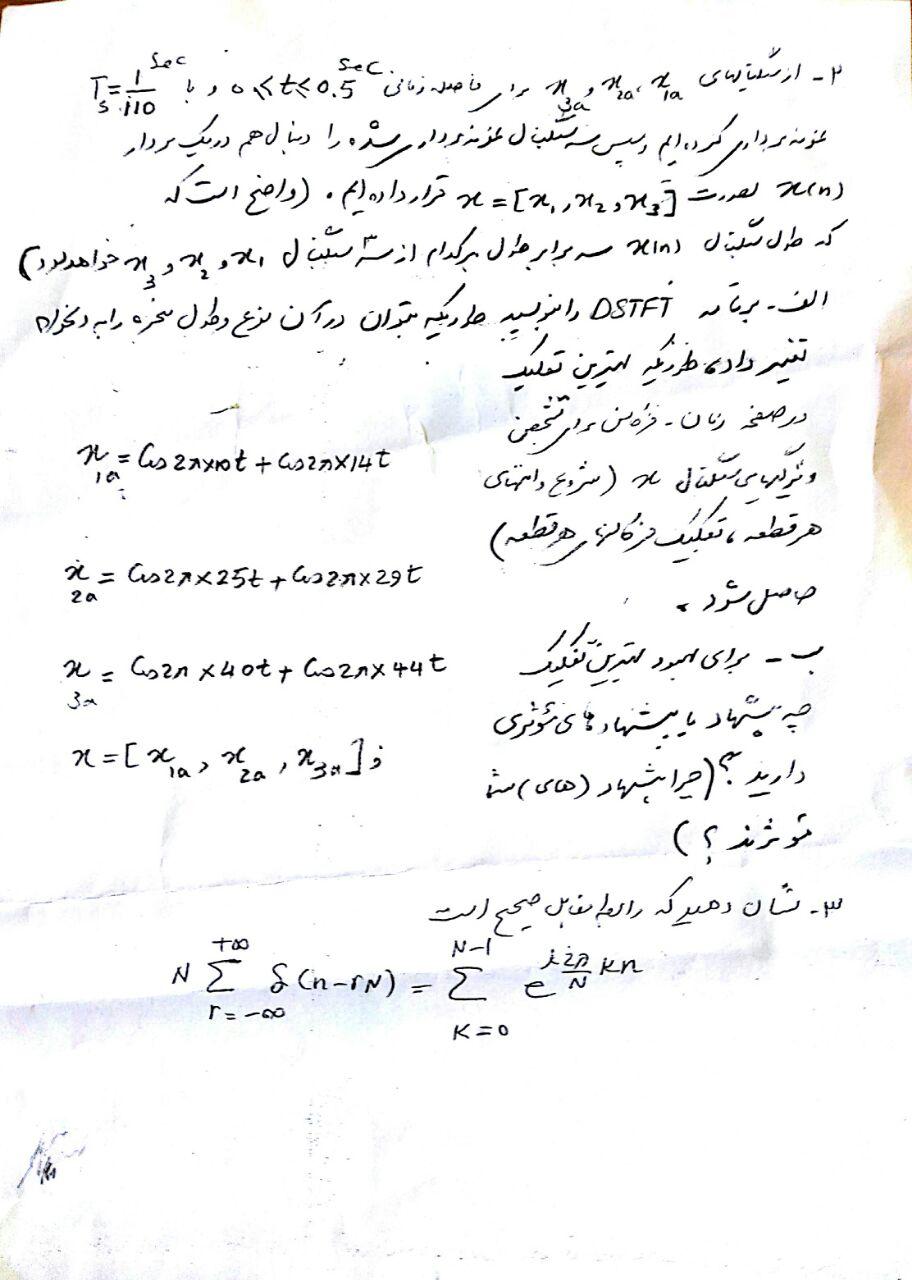 ۲- از سیگنالهای x1a، x2a و x3a برای فاصله زمانی 0≤t≤0.5 sec و با Ts=1/110 sec
نمونه برداری کرده ایم و سپس سه سیگنال نمونه برداری شده را دنبال هم در یک بردار
x(n) بصورت x=[x1,x2,x3] قرار داده ایم. (واضح است که
که طول سیگنال x(n) سه برابر طول هرکدام از سه سیگنال x1 و x2 و x3 خواهد بود)
الف- برنامه DSTFT را بنویسید طوریکه بتوان در آن نوع و طول پنجره را به دلخواه
تغییر داد، طوریکه بهترین تفکیک
در صفحه زمان - فرکانس برای تشخیص
ویژگیهای سیگنال x (شروع و انتهای
هر قطعه، تفکیک فرکانسهای هر قطعه)
حاصل شود.
x1a = Cos2π×10t + Cos2π×14t
x2a = Cos2π×25t + Cos2π×29t
x3a = Cos2π×40t + Cos2π×44t
x = [x1a, x2a, x3a] ;
ب- برای بهبود بهترین تفکیک
چه پیشنهاد یا پیشنهادهای مؤثری
دارید؟ (چرا پیشنهاد (های) شما
مؤثرند؟)
۳- نشان دهید که رابطه مقابل صحیح است
N Σ_{r=-∞}^{+∞} δ(n-rN) = Σ_{K=0}^{N-1} e^{i 2π/N Kn}